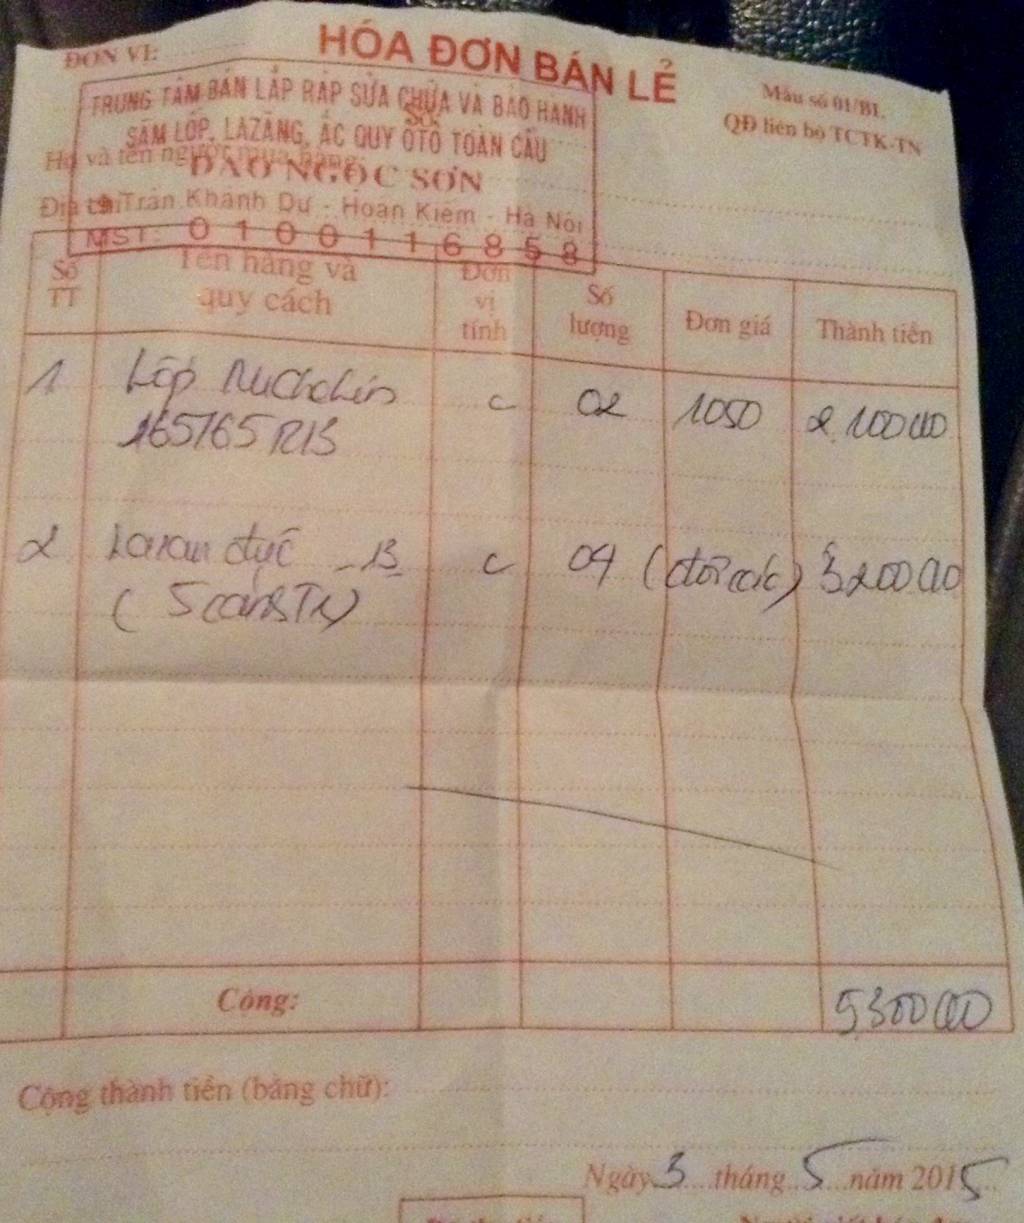 HÓA ĐƠN BÁN LẺ
ĐƠN VỊ:
Mẫu số 01/BL
QĐ liên bộ TCTK-TN
TRUNG TÂM BÁN LẮP RÁP SỬA CHỮA VÀ BẢO HÀNH
SĂM LỐP, LAZĂNG, ẮC QUY ÔTÔ TOÀN CẦU
Họ và tên người mua hàng:
ĐÀO NGỌC SƠN
Địa chỉ Trần Khánh Dư - Hoàn Kiếm - Hà Nội
MST: 0100116858
Số TT
Tên hàng và quy cách
Đơn vị tính
Số lượng
Đơn giá
Thành tiền
1 Lốp 165/65R13 c 02 1050 2.100000
2 đúc - 13 c 04 (đổi các) 3200000
(5 )
Cộng: 5300000
Cộng thành tiền (bằng chữ):
Ngày 3 tháng 5 năm 2015